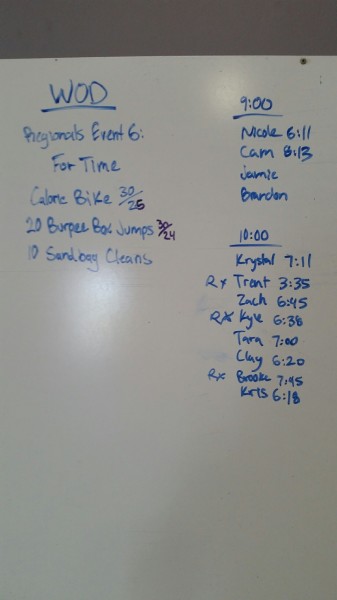 WOD
Regionals Event 6:
For Time
Calorie Bike 30/25
20 Burpee Box Jumps 30/24
10 Sandbag Cleans
9:00
Nicole 6:11
Cam 8:13
Jamie
Brandon
10:00
Krystal 7:11
Rx Trent 3:35
Zach 6:45
Rx Kyle 6:38
Tara 7:00
Clay 6:20
Rx Brooke 7:45
Kris 6:18